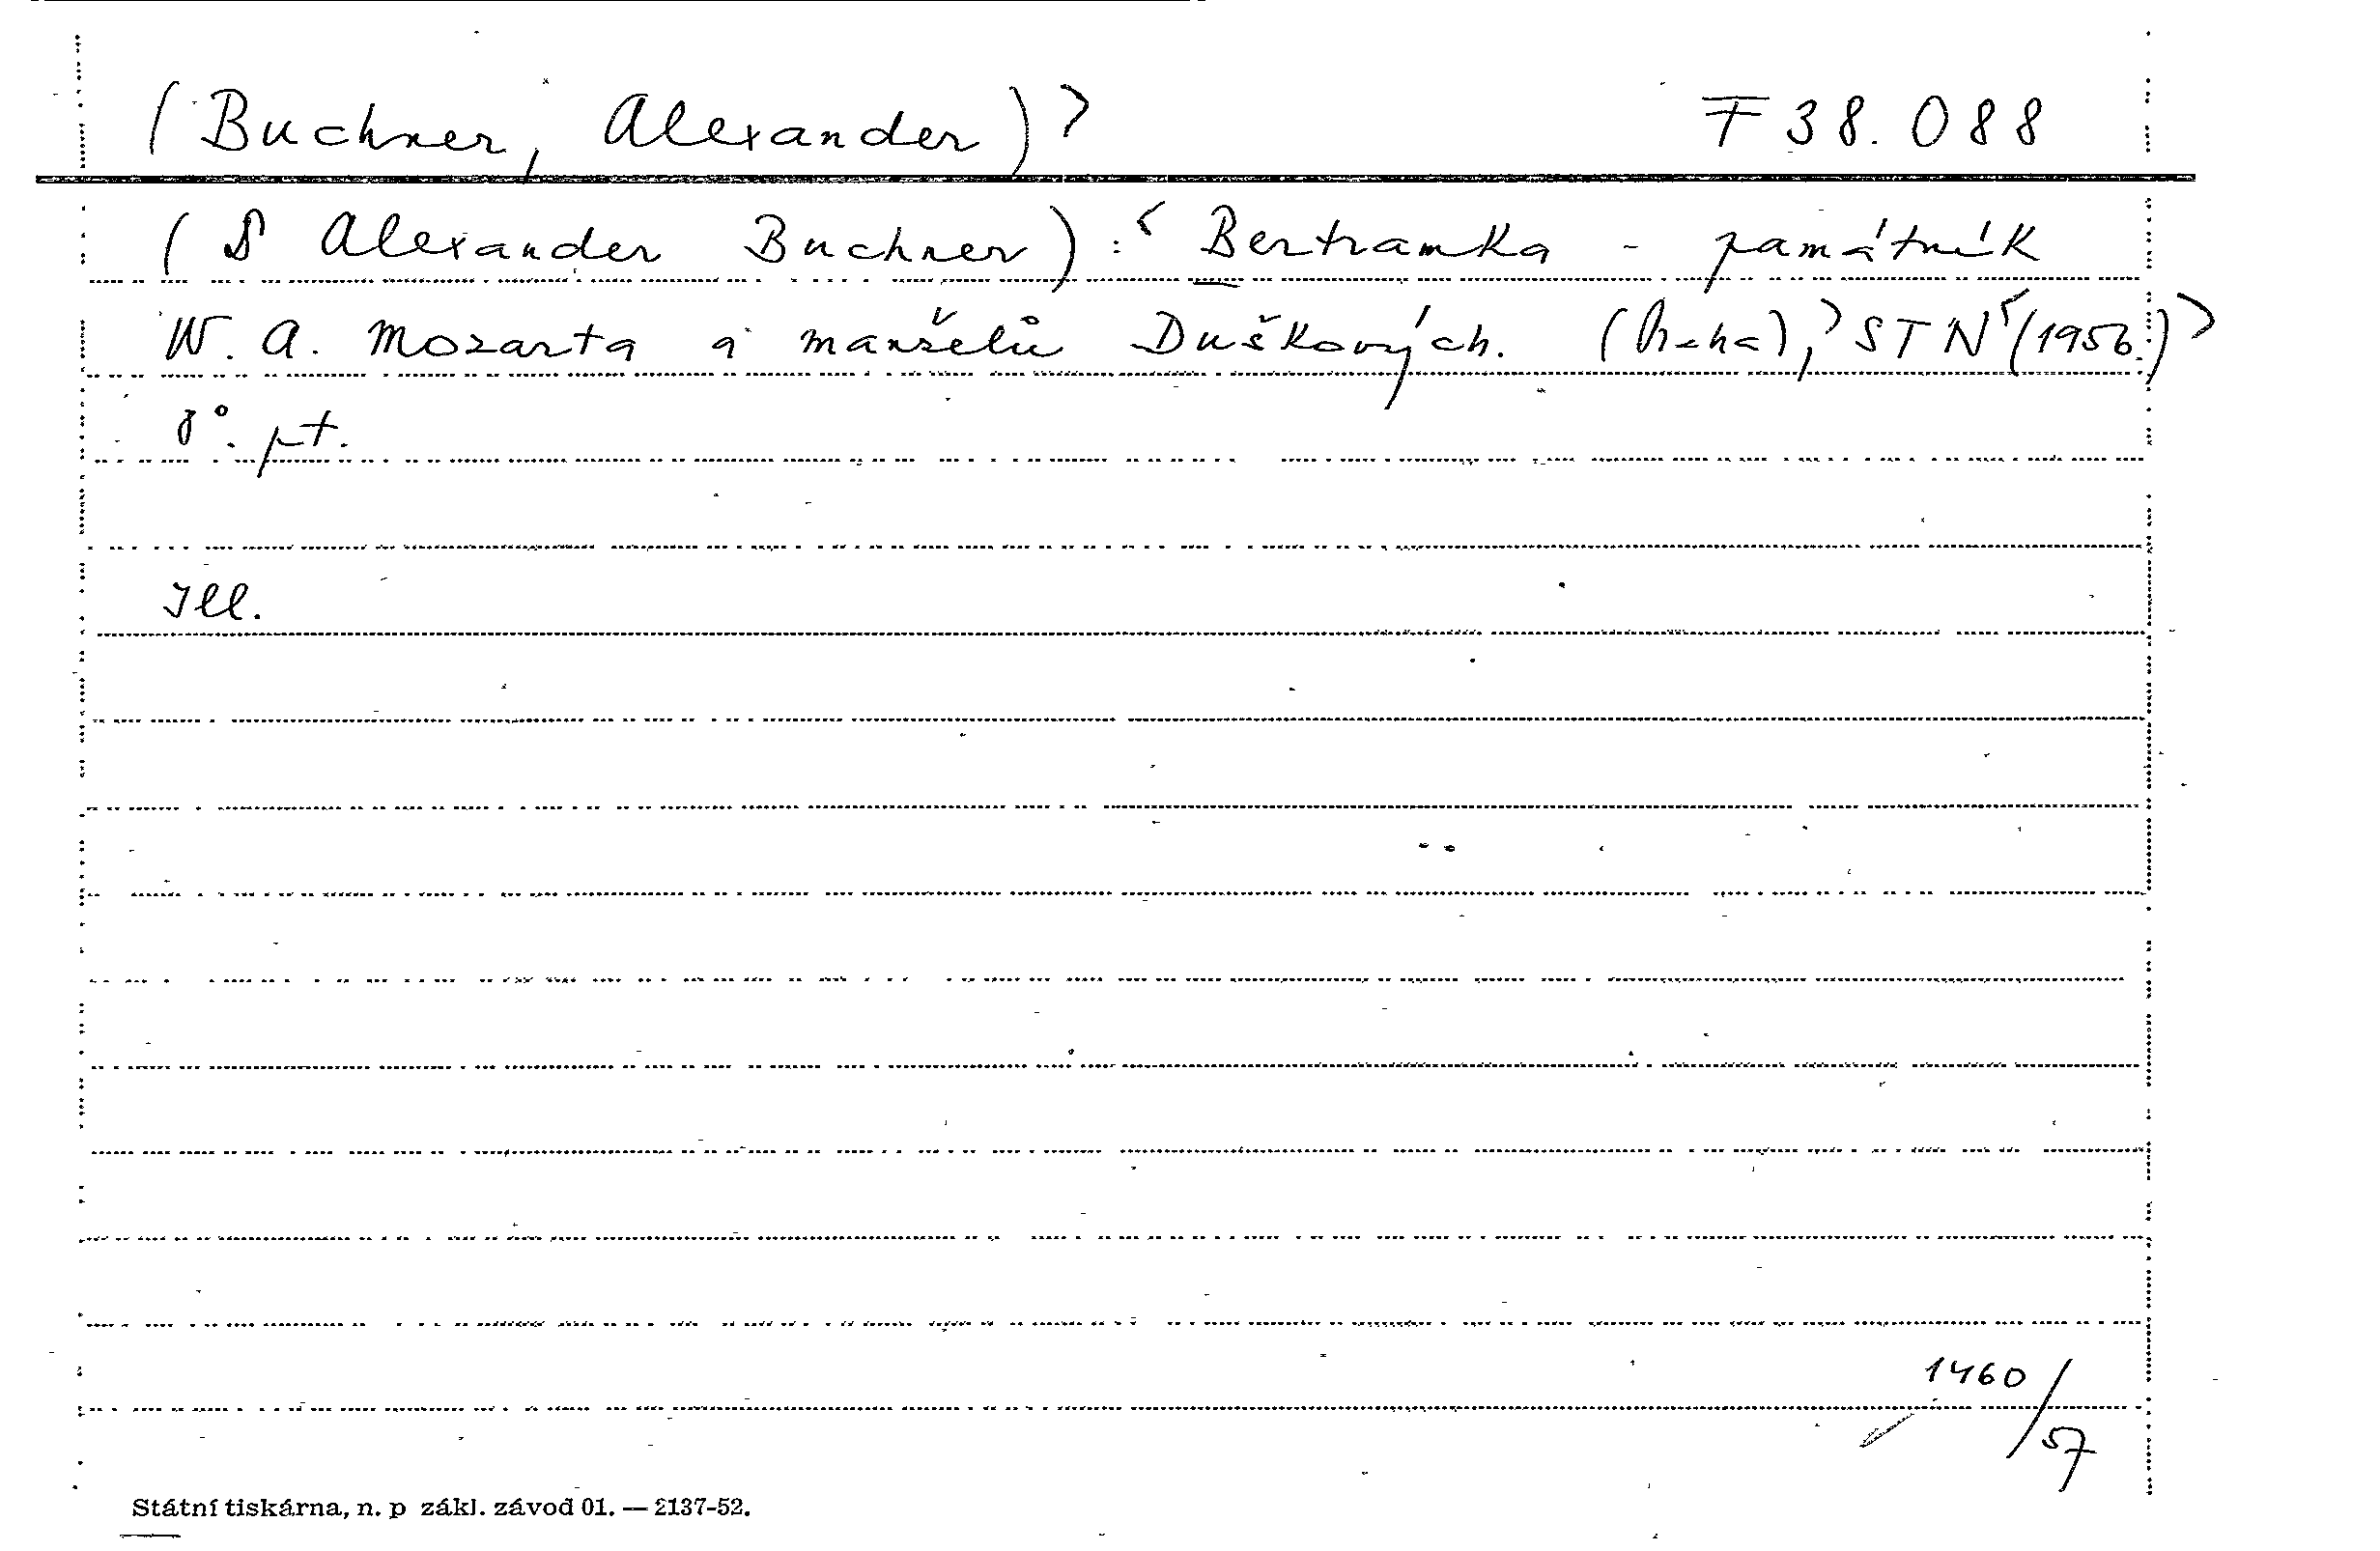 (Buchner, Alexander)> F 38.088
( Alexander Buchner):< Bertramka - památník
W. A. Mozarta a manželů Duškových. (Praha),> STN <(1956.)>
8°. pt.
Ill.
1460/57
Státní tiskárna, n. p zákl. závod 01. — 2137-52.